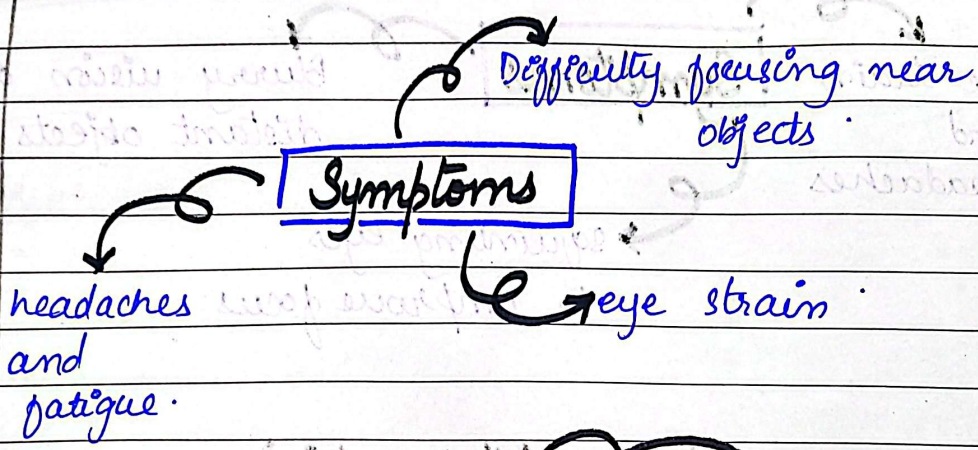 Difficulty focusing near
objects.
Symptoms
headaches
and
fatigue.
eye strain.